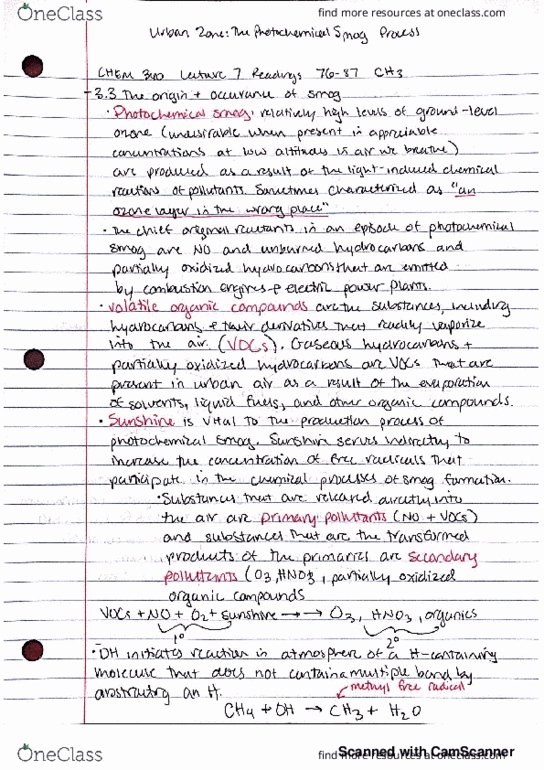 OneClass
find more resources at oneclass.com
Urban Zone: The Photochemical Smog Process
CHEM 340 Lecture 7 Readings 76-87 CH3
- 3.3 The origin + occurance of smog
• Photochemical smog: relatively high levels of ground-level
ozone (undesirable when present in appreciable
concentrations at low altitudes is air we breathe)
are produced as a result of the light-induced chemical
reactions of pollutants. Sometimes characterized as "an
ozone layer in the wrong place"
• The chief original reactants in an episode of photochemical
smog are NO and unburned hydrocarbons and
partially oxidized hydrocarbons that are emitted
by combustion engines + electric power plants.
• volatile organic compounds are the substances, including
hydrocarbons + their derivatives that readily vaporize
into the air. (VOCs). Gaseous hydrocarbons +
partially oxidized hydrocarbons are VOCs that are
present in urban air as a result of the evaporation
of solvents, liquid fuels, and other organic compounds.
• Sunshine is vital to the production process of
photochemical smog. Sunshine serves indirectly to
increase the concentration of free radicals that
participate in the chemical processes of smog formation.
• Substances that are released directly into
the air are primary pollutants (NO + VOCs)
and substances that are the transformed
products of the primaries are secondary
pollutants (O3, HNO3, partially oxidized
organic compounds
VOCs + NO + O2 + sunshine →→ O3, HNO3, organics
1° 2°
• OH initiates reaction in atmosphere of a H-containing
molecule that does not contain a multiple bond by
abstracting an H.
methyl free radical
CH4 + OH → CH3 + H2O
Scanned with CamScanner
OneClass
find more resources at oneclass.com